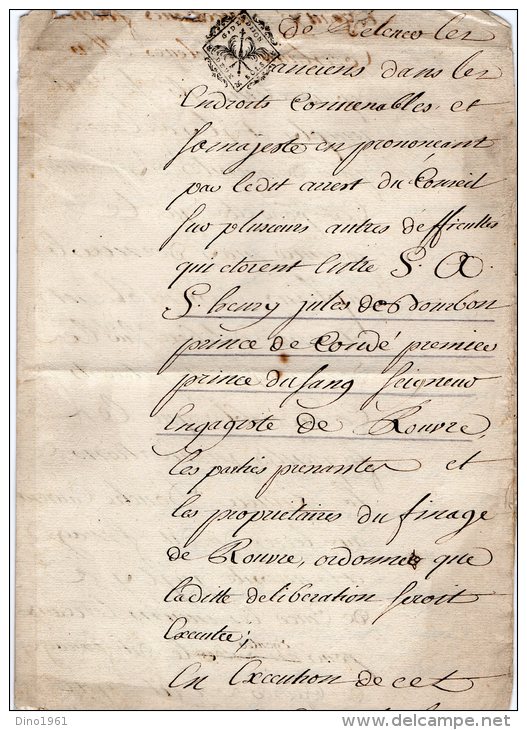 de Relever les
anciens dans les
Endroits Convenables et
sa majesté en prononcant
par ledit arrest du Conseil
sur plusieurs autres difficultés
qui etoient entre S. A.
S. henry jules de Bourbon
prince de Condé premier
prince du sang Seigneur
Engagiste de Rouvre,
les parties prenantes et
les proprietaires du finage
de Rouvre, ordonne que
laditte deliberation seroit
Executée;
En Execution de cet
Dino1961
delcampe.net